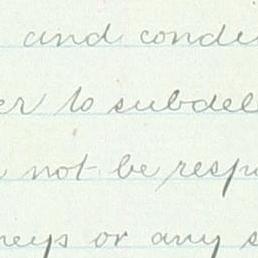 and condi
er to subdele
not be resp
neys or any s